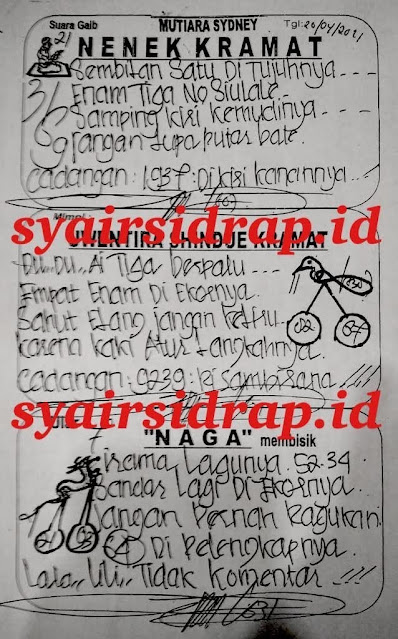 Suara Gaib MUTIARA SYDNEY Tgl: 20/04/2021
NENEK KRAMAT
Sembilan Satu Di Tujuhnya ---
Enam Tiga No Siulale
Samping kiri kemudinya ---
Jangan lupa putar bate
Cadangan: 1937: Di kiri kanannya ...
syairsidrap.id
Mimpi:
KRAMAT
Du.. Du.. Ai Tiga berpalu ---
Empat Enam Di Ekornya
Sahut Elang jangan keliru
karena kaki Atur Langkahnya
82
Cadangan: 9239:
syairsidrap.id
"NAGA" membisik
irama Lagunya 52.34
Sandar Lagi Di Ekornya
Jangan Pernah Ragukan
Di Pelengkapnya
Lala.. Lili.. Tidak komentar